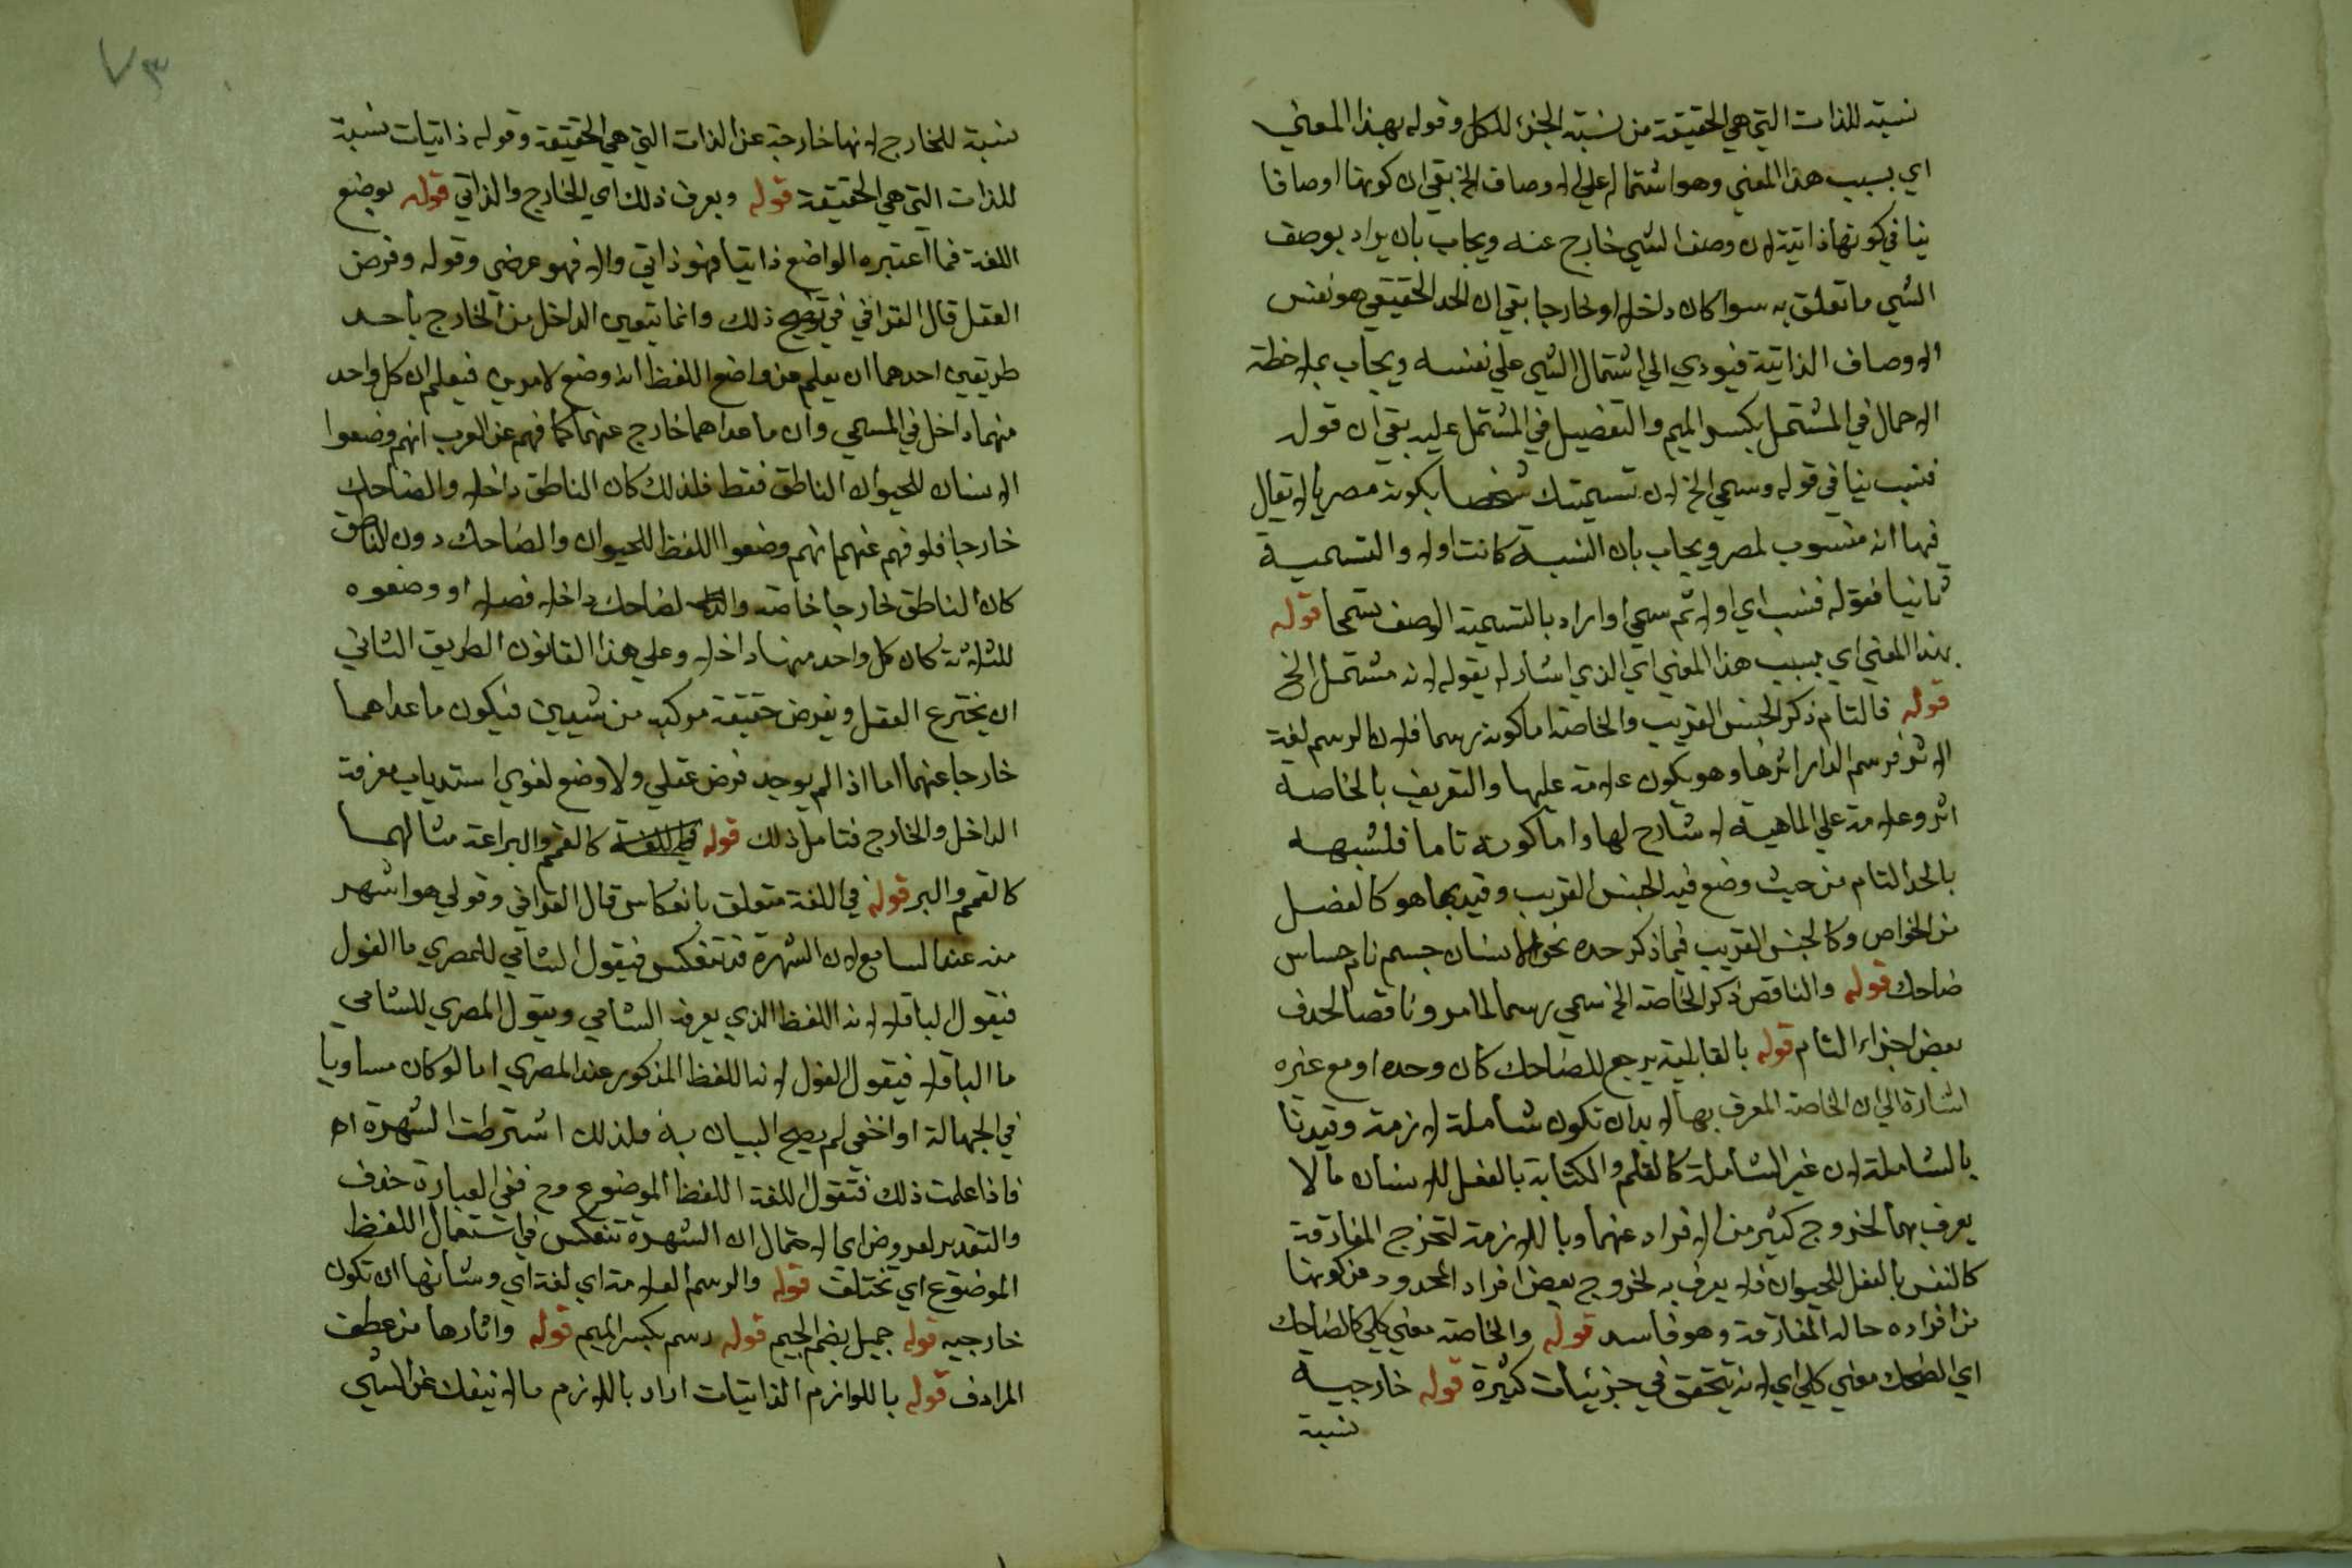 نسبته للذات التي هي الحقيقة من نسبة الجزء للكل وقوله بهذا المعني
اي بسبب هذا المعني وهو اشتماله علي الاوصاف الخ بقي ان كونها اوصافا
ينافي كونها ذاتية لان وصف الشي خارج عنه ويجاب بان يراد بوصف
الشي ما تعلق به سوا كان داخلا او خارجا بقي ان الحد الحقيقي هو نفس
الاوصاف الذاتية فيودي الي اشتمال الشي علي نفسه ويجاب بملاحظة
الاجمال في المشتمل بكسر الميم والتفصيل في المشتمل عليه بقي ان قوله
فنسب ينافي قوله وسمي الخ لان تسميتك شخصا بكونه مصريا لا يقال
فيها انه منسوب لمصر ويجاب بان النسبة كانت اولا والتسمية
ثانيا فقوله فنسب اي اولا ثم سمي او اراد بالتسمية الوصف سمحا قوله
بهذا المعني اي بسبب هذا المعني اي الذي اشار له بقوله لانه مشتمل الخ
قوله فالتام ذكر الجنس القريب والخاصة اما كونه رسما فلان الرسم لغة
الاثر فرسم الدار اثرها وهو يكون علامة عليها والتعريف بالخاصة
اثر وعلامة علي الماهية لا شارح لها واما كونه تاما فلشبهه
بالحد التام من حيث وضع فيه الجنس القريب وقيد بما هو كالفصل
من الخواص وكالجنس القريب فيما ذكر حده نحو الانسان جسم نام حساس
ضاحك قوله والناقص ذكر الخاصة الخ سمي رسما لما مر وناقصا لحذف
بعض اجزاء التام قوله بالقابلية يرجع للضاحك كان وحده او مع غيره
اشارة الي ان الخاصة المعرف بها لا بد ان تكون شاملة لازمة وقيدنا
بالشاملة لان غير الشاملة كالعلم والكتابة بالفعل للانسان ما لا
يعرف بهما لخروج كثير من الافراد عنهما وباللازمة لتخرج المفارقة
كالنفس بالفعل للحيوان فلا يعرف به لخروج بعض افراد المحدود عن كونها
من افراده حالة المفارقة وهو فاسد قوله والخاصة معني كلي كالضاحك
اي الضحك معني كلي اي لانه يتحقق في جزئيات كثيرة قوله خارجية
نسبة
٧٣
نسبة للخارج لانها خارجة عن الذات التي هي الحقيقة وقوله ذاتيات نسبة
للذات التي هي الحقيقة قوله ويعرف ذلك اي الخارج والذاتي قوله بوضع
اللغة فما اعتبره الواضع ذاتيا فهو ذاتي والا فهو عرضي وقوله وفرض
العقل قال القرافي في توضيح ذلك وانما يتعين الداخل من الخارج باحد
طريقين احدهما ان يعلم من واضع اللفظ انه وضع لامرين فيعلم ان كل واحد
منهما داخل في المسمي وان ما عداهما خارج عنهما كما فهم عن العرب انهم وضعوا
الانسان للحيوان الناطق فقط فلذلك كان الناطق داخلا والضاحك
خارجا فلو فهم عنهم انهم وضعوا اللفظ للحيوان والضاحك دون الناطق
كان الناطق خارجا خاصة والضاحك داخلا فصلا او وضعوه
للثلاثة كان كل واحد منها داخلا وعلي هذا القانون الطريق الثاني
ان يخترع العقل ويفرض حقيقة مركبة من شيئين فيكون ما عداهما
خارجا عنهما اما اذا لم يوجد فرض عقلي ولا وضع لغوي استد باب معرفة
الداخل والخارج فتامل ذلك قوله كالقمح والبر اعة مثالهما
كالقمح والبر قوله في اللغة متعلق بانعكاس قال القرافي وقولي هو اشهر
منه عند السامع لان الشهرة قد تنعكس فيقول الشامي للمصري ما الفول
فيقول الباقلا لانه اللفظ الذي يعرفه الشامي ويقول المصري للشامي
ما الباقلا فيقول الفول لانه اللفظ المذكور عند المصري اما لو كان مساويا
في الجهالة او اخفي لم يصح البيان به فلذلك اشترطت الشهرة اه
فاذا علمت ذلك فتقول اللغة اللفظ الموضوع وح ففي العبارة حذف
والتقدير لعروض اي لاحتمال ان الشهرة تنعكس في استعمال اللفظ
الموضوع اي تختلف قوله والرسم العلامة اي لغة اي وشانها ان تكون
خارجيه قوله جميل بضم الجيم قوله رسم بكسر الميم قوله واثارها من عطف
المرادف قوله باللوازم الذاتيات اراد باللازم ما لا ينفك عن الشي